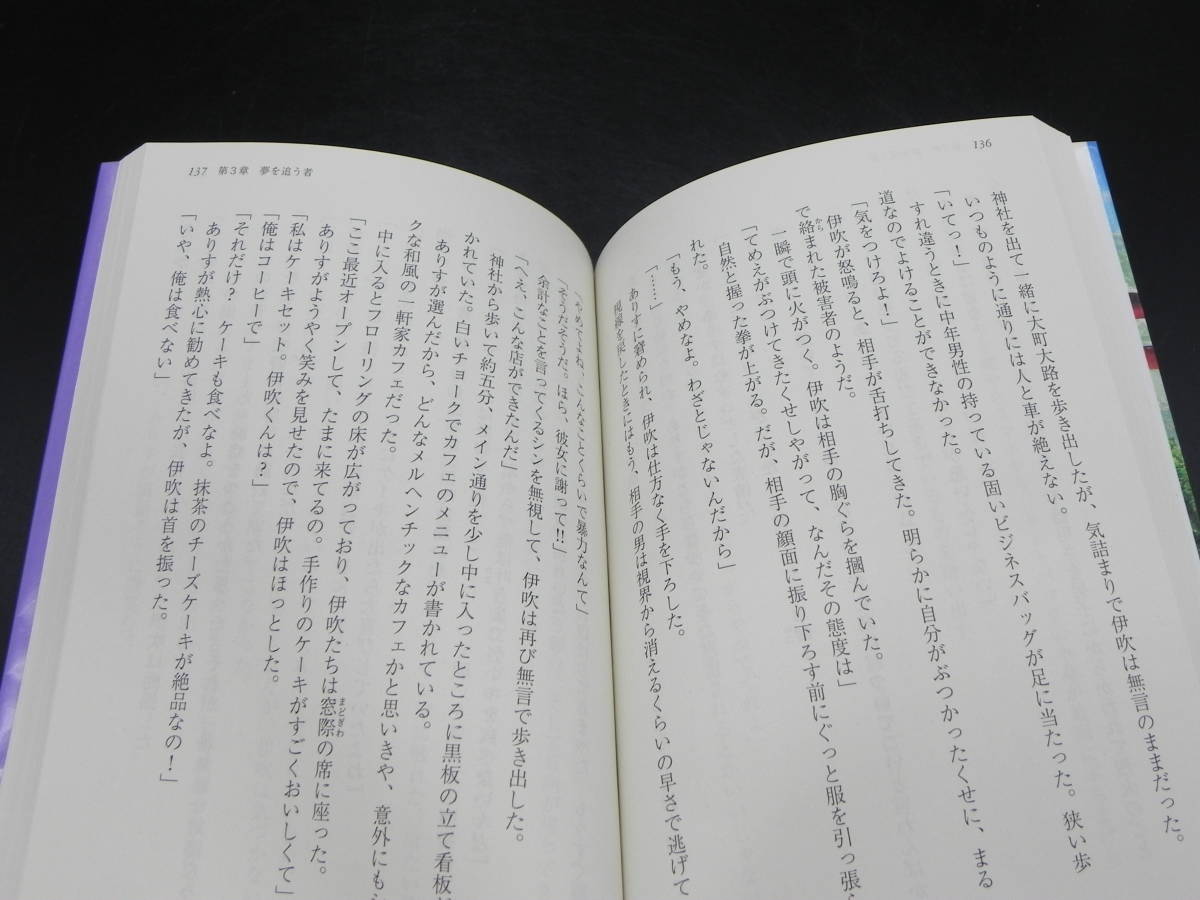 136
神社を出て一緒に大町大路を歩き出したが、気詰まりで伊吹は無言のままだった。
いつものように通りには人と車が絶えない。
「いてっ！」
すれ違うときに中年男性の持っている固いビジネスバッグが足に当たった。狭い歩
道なのでよけることができなかった。
「気をつけろよ！」
伊吹が怒鳴ると、相手が舌打ちしてきた。明らかに自分がぶつかったくせに、まる
で絡まれた被害者のようだ。
から
一瞬で頭に火がつく。伊吹は相手の胸ぐらを摑んでいた。
「てめえがぶつけてきたくせしやがって、なんだその態度は」
自然と握った拳が上がる。だが、相手の顔面に振り下ろす前にぐっと服を引っ張
れた。
「もう、やめなよ。わざとじゃないんだから」
「……」
ありすに窘められ、伊吹は仕方なく手を下ろした。
視線を戻したときにはもう、相手の男は視界から消えるくらいの早さで逃げて
137 第3章 夢を追う者
「やめてよね。こんなことくらいで暴力なんて」
「そうだそうだ。ほら、彼女に謝って!!」
余計なことを言ってくるシンを無視して、伊吹は再び無言で歩き出した。
「へえ、こんな店ができたんだ」
神社から歩いて約五分、メイン通りを少し中に入ったところに黒板の立て看板
かれていた。白いチョークでカフェのメニューが書かれている。
ありすが選んだから、どんなメルヘンチックなカフェかと思いきや、意外にも
クな和風の一軒家カフェだった。
中に入るとフローリングの床が広がっており、伊吹たちは窓際の席に座った。
まどぎわ
「ここ最近オープンして、たまに来てるの。手作りのケーキがすごくおいしくて」
ありすがようやく笑みを見せたので、伊吹はほっとした。
「私はケーキセット。伊吹くんは？」
「俺はコーヒーで」
「それだけ？　ケーキも食べなよ。抹茶のチーズケーキが絶品なの！」
ありすが熱心に勧めてきたが、伊吹は首を振った。
「いや、俺は食べない」